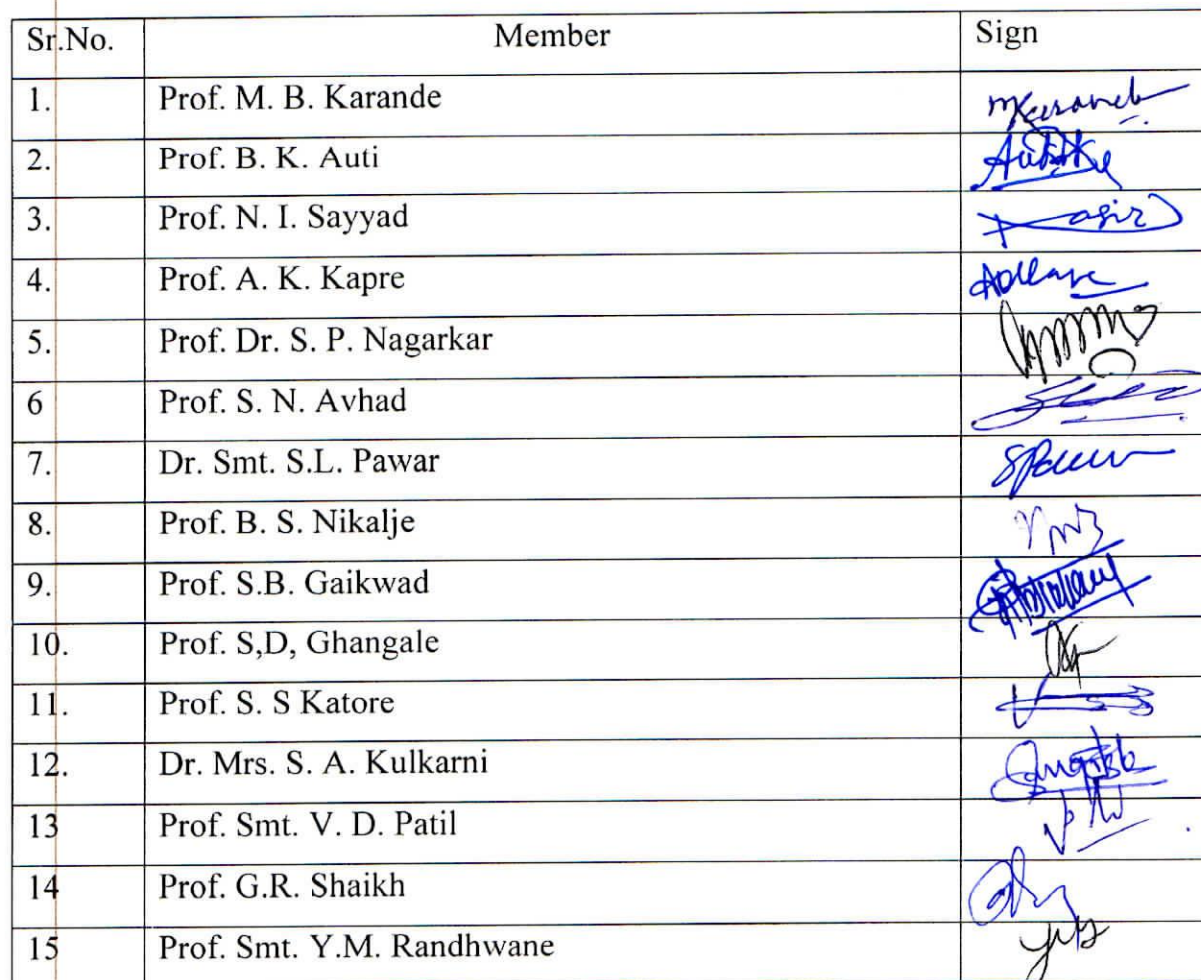 Sr.No. Member Sign
1. Prof. M. B. Karande
2. Prof. B. K. Auti
3. Prof. N. I. Sayyad
4. Prof. A. K. Kapre
5. Prof. Dr. S. P. Nagarkar
6 Prof. S. N. Avhad
7. Dr. Smt. S.L. Pawar
8. Prof. B. S. Nikalje
9. Prof. S.B. Gaikwad
10. Prof. S,D, Ghangale
11. Prof. S. S Katore
12. Dr. Mrs. S. A. Kulkarni
13 Prof. Smt. V. D. Patil
14 Prof. G.R. Shaikh
15 Prof. Smt. Y.M. Randhwane